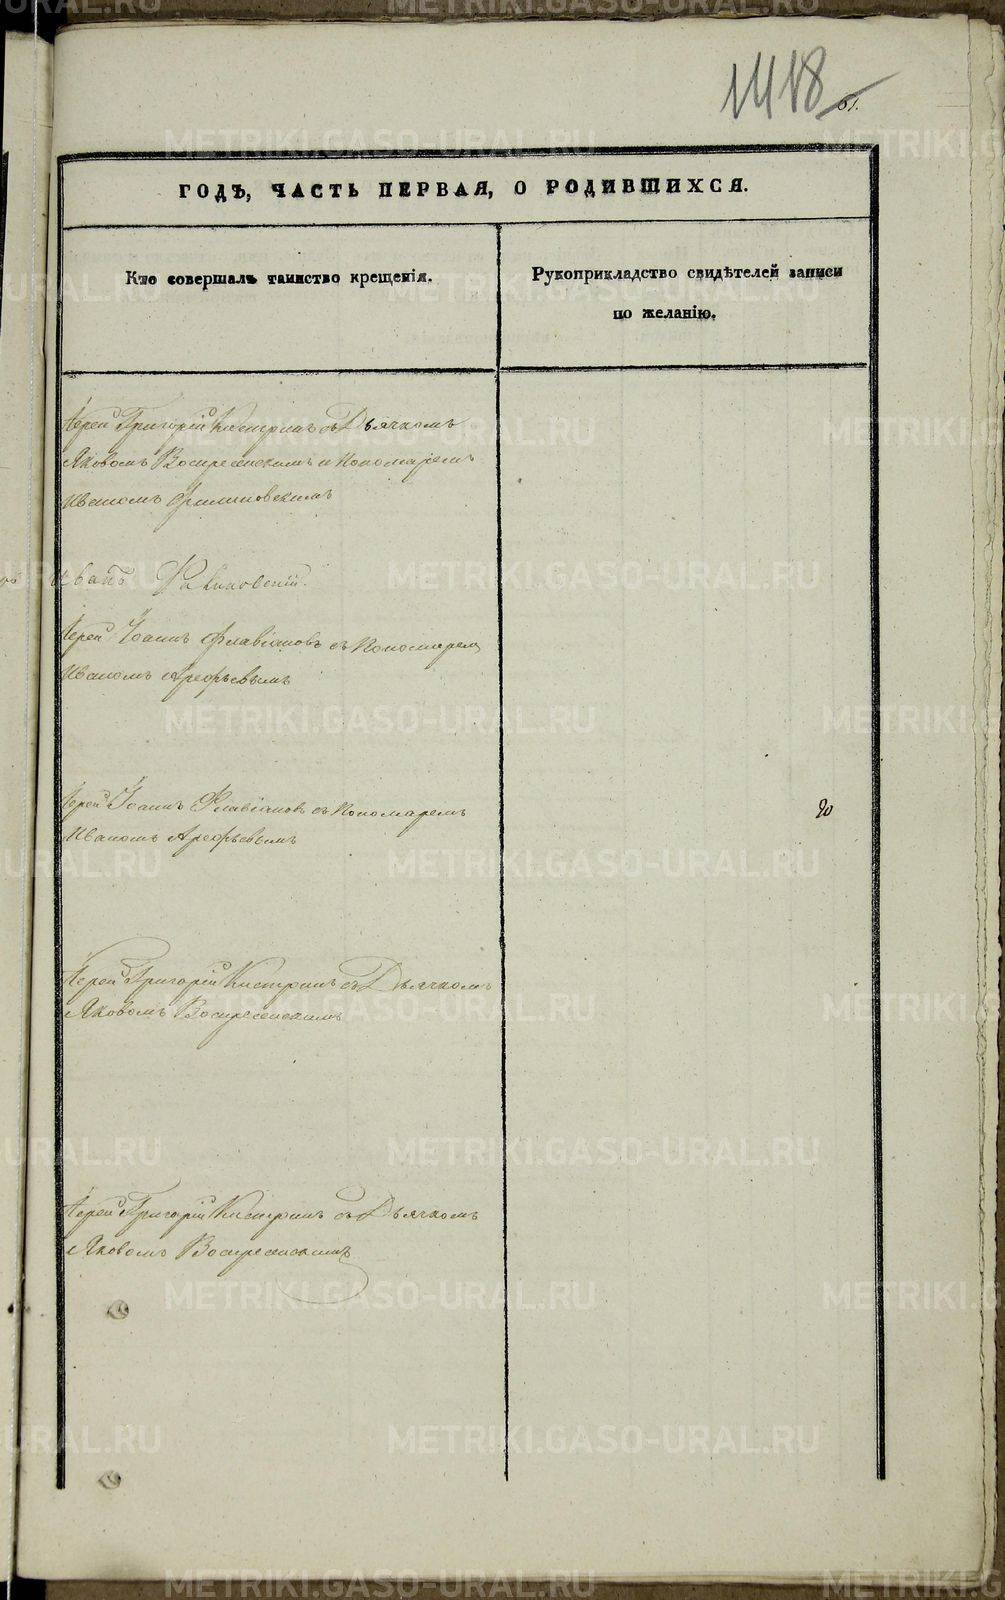 1118
61.
ГОДЪ, ЧАСТЬ ПЕРВАЯ, О РОДИВШИХСЯ.
Кто совершалъ таинство крещенія.
Рукоприкладство свидѣтелей записи
по желанію.
Іерей Григорій съ Дьячкомъ
Яковомъ Воскресенскимъ и Пономаремъ
Иваномъ
Иванъ
Іерей Іоаннъ Флавіановъ съ Пономаремъ
Иваномъ Арефьевымъ
Іерей Іоаннъ Флавіановъ съ Пономаремъ
Иваномъ Арефьевымъ
Іерей Григорій съ Дьячкомъ
Яковомъ Воскресенскимъ
Іерей Григорій съ Дьячкомъ
Яковомъ Воскресенскимъ
METRIKI.GASO-URAL.RU